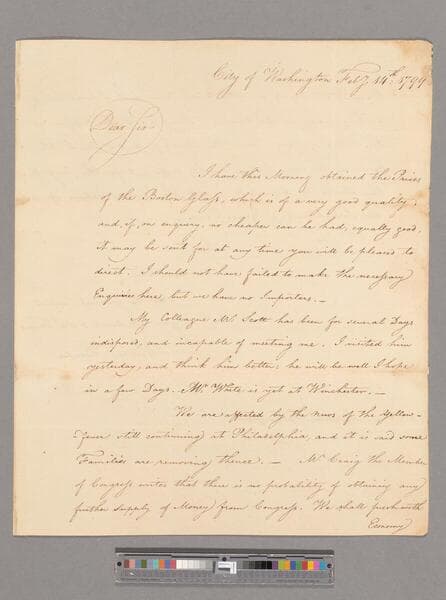 City of Washington Feby. 14th. 1799
Dear Sir
I have this Morning obtained the Prices
of the Boston Glass, which is of a very good quality,
and, if, on enquiry, no cheaper can be had, equally good,
it may be sent for at any time you will be pleased to
direct. I should not have failed to make the necessary
Enquiries here, but we have no Importers. —
My Colleague Mr. Scott has been for several Days
indisposed, and incapable of meeting me. I visited him
yesterday, and think him better; he will be well I hope
in a few Days. Mr. White is yet at Winchester. —
We are affected by the News of the Yellow-
fever still continuing at Philadelphia, and it is said some
Families are removing thence. — Mr. Craig the Member
of Congress writes that there is no probability of obtaining any
further supply of Money from Congress. We shall
Economy